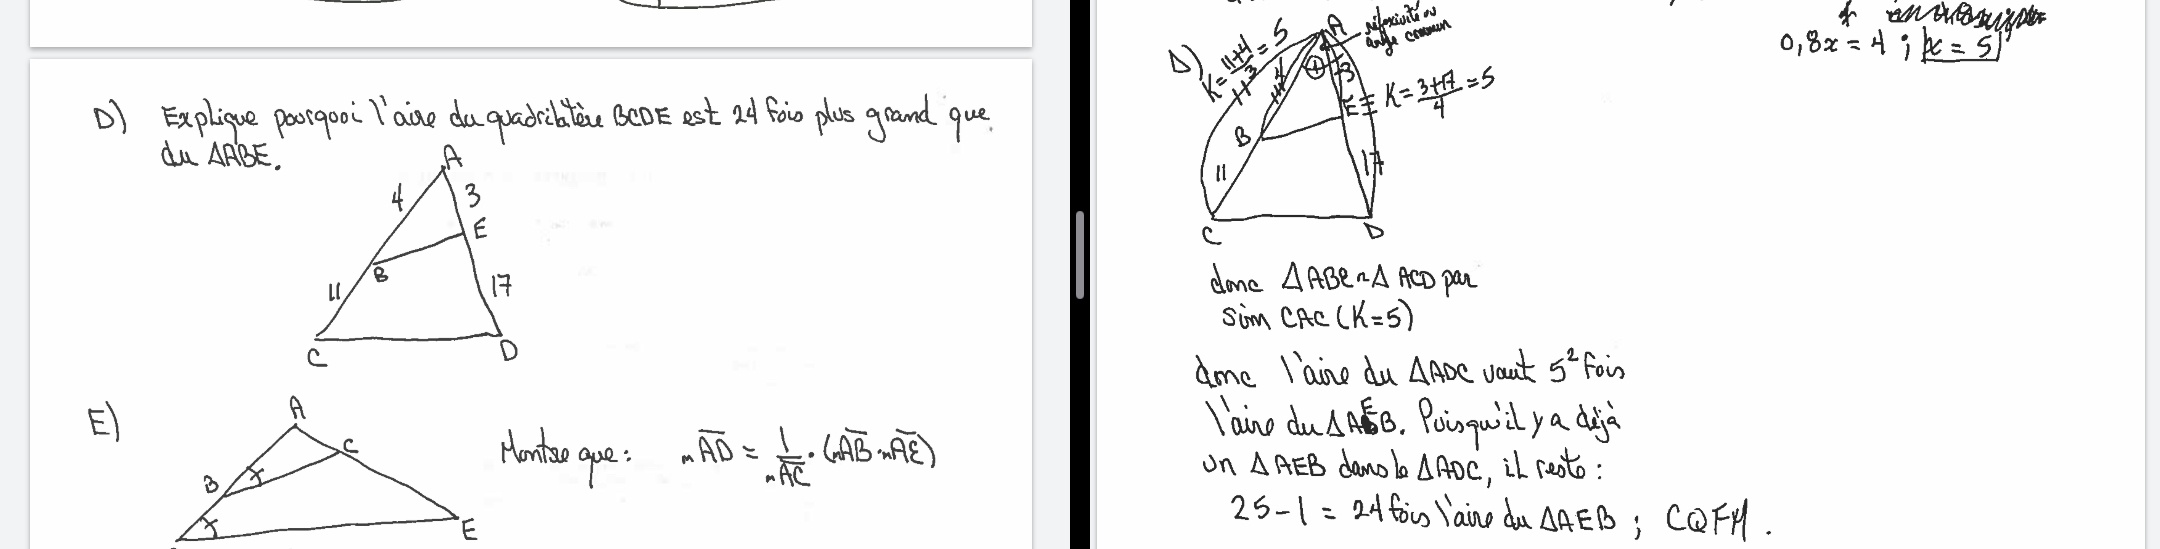 D) Explique pourquoi l'aire du quadrilatère BCDE est 24 fois plus grand que
du ΔABE.
A
4
3
E
B
11
17
C
D
E)
A
C
B
x
x
E
Montre que : m AD = 1/m AC · (m AB · m AE)
0,8x = 4 ; x = 5
D)
K = 11+4 / 3 = 5
A
réflexivité ou
angle commun
4
3
E
K = 3+17 / 4 = 5
B
11
17
C
D
donc ΔABE ~ Δ ACD par
sim CAC (K=5)
donc l'aire du ΔADC vaut 5² fois
l'aire du ΔAEB. Puisqu'il y a déjà
un ΔAEB dans le ΔADC, il reste :
25-1 = 24 fois l'aire du ΔAEB ; CQFM.